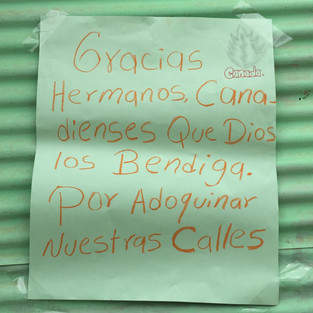 Gracias
Canada.
Hermanos, Cana-
dienses Que Dios
los Bendiga.
Por Adoquinar
Nuestras Calles